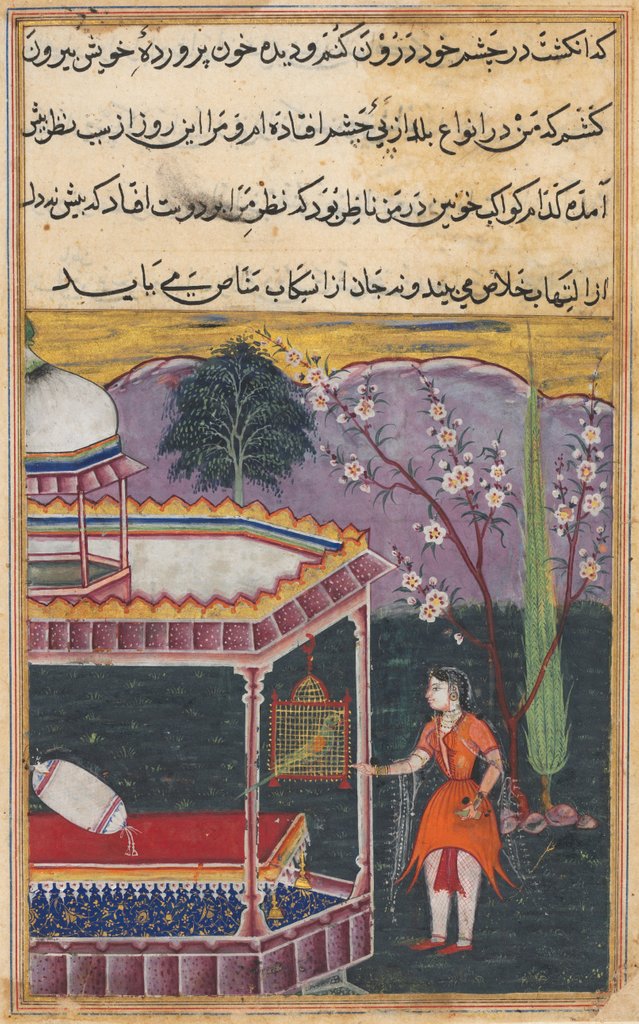 که انگشت در چشم خود درون کنم و دیده خون پروردهٔ خویش بیرون
کنم که من در انواع بلا از پئ چشم افتاده ام و مرا این روز از سبب نظر پیش
آمده کدام کواکب خونین در من ناظر بود که نظر مرا بر دوست افتاد که بیش نه دل
از التهاب خلاص می بیند و نه جان از انسکاب مناص می یابد